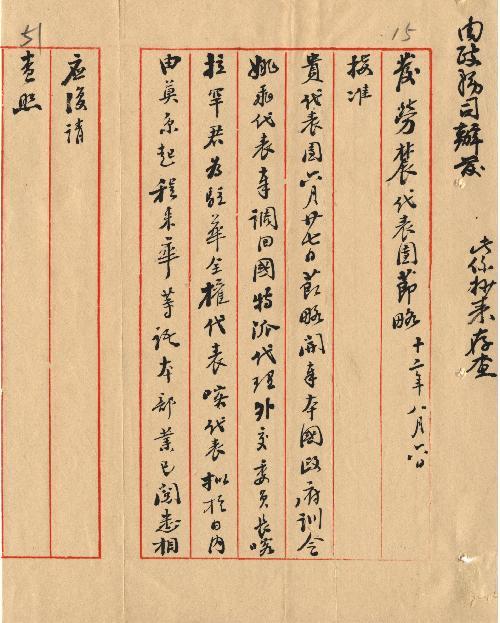 由政務司辦發
此係抄来存查
15
發勞農代表團節略 十二年八月六日
接准
貴代表團六月廿七日節略開奉本國政府訓令
姚飛代表奉調回國特派代理外交委員長喀
拉罕君為駐華全權代表喀代表擬於日內
由莫京起程来華等語本部業已閱悉相
應復請
查照
51